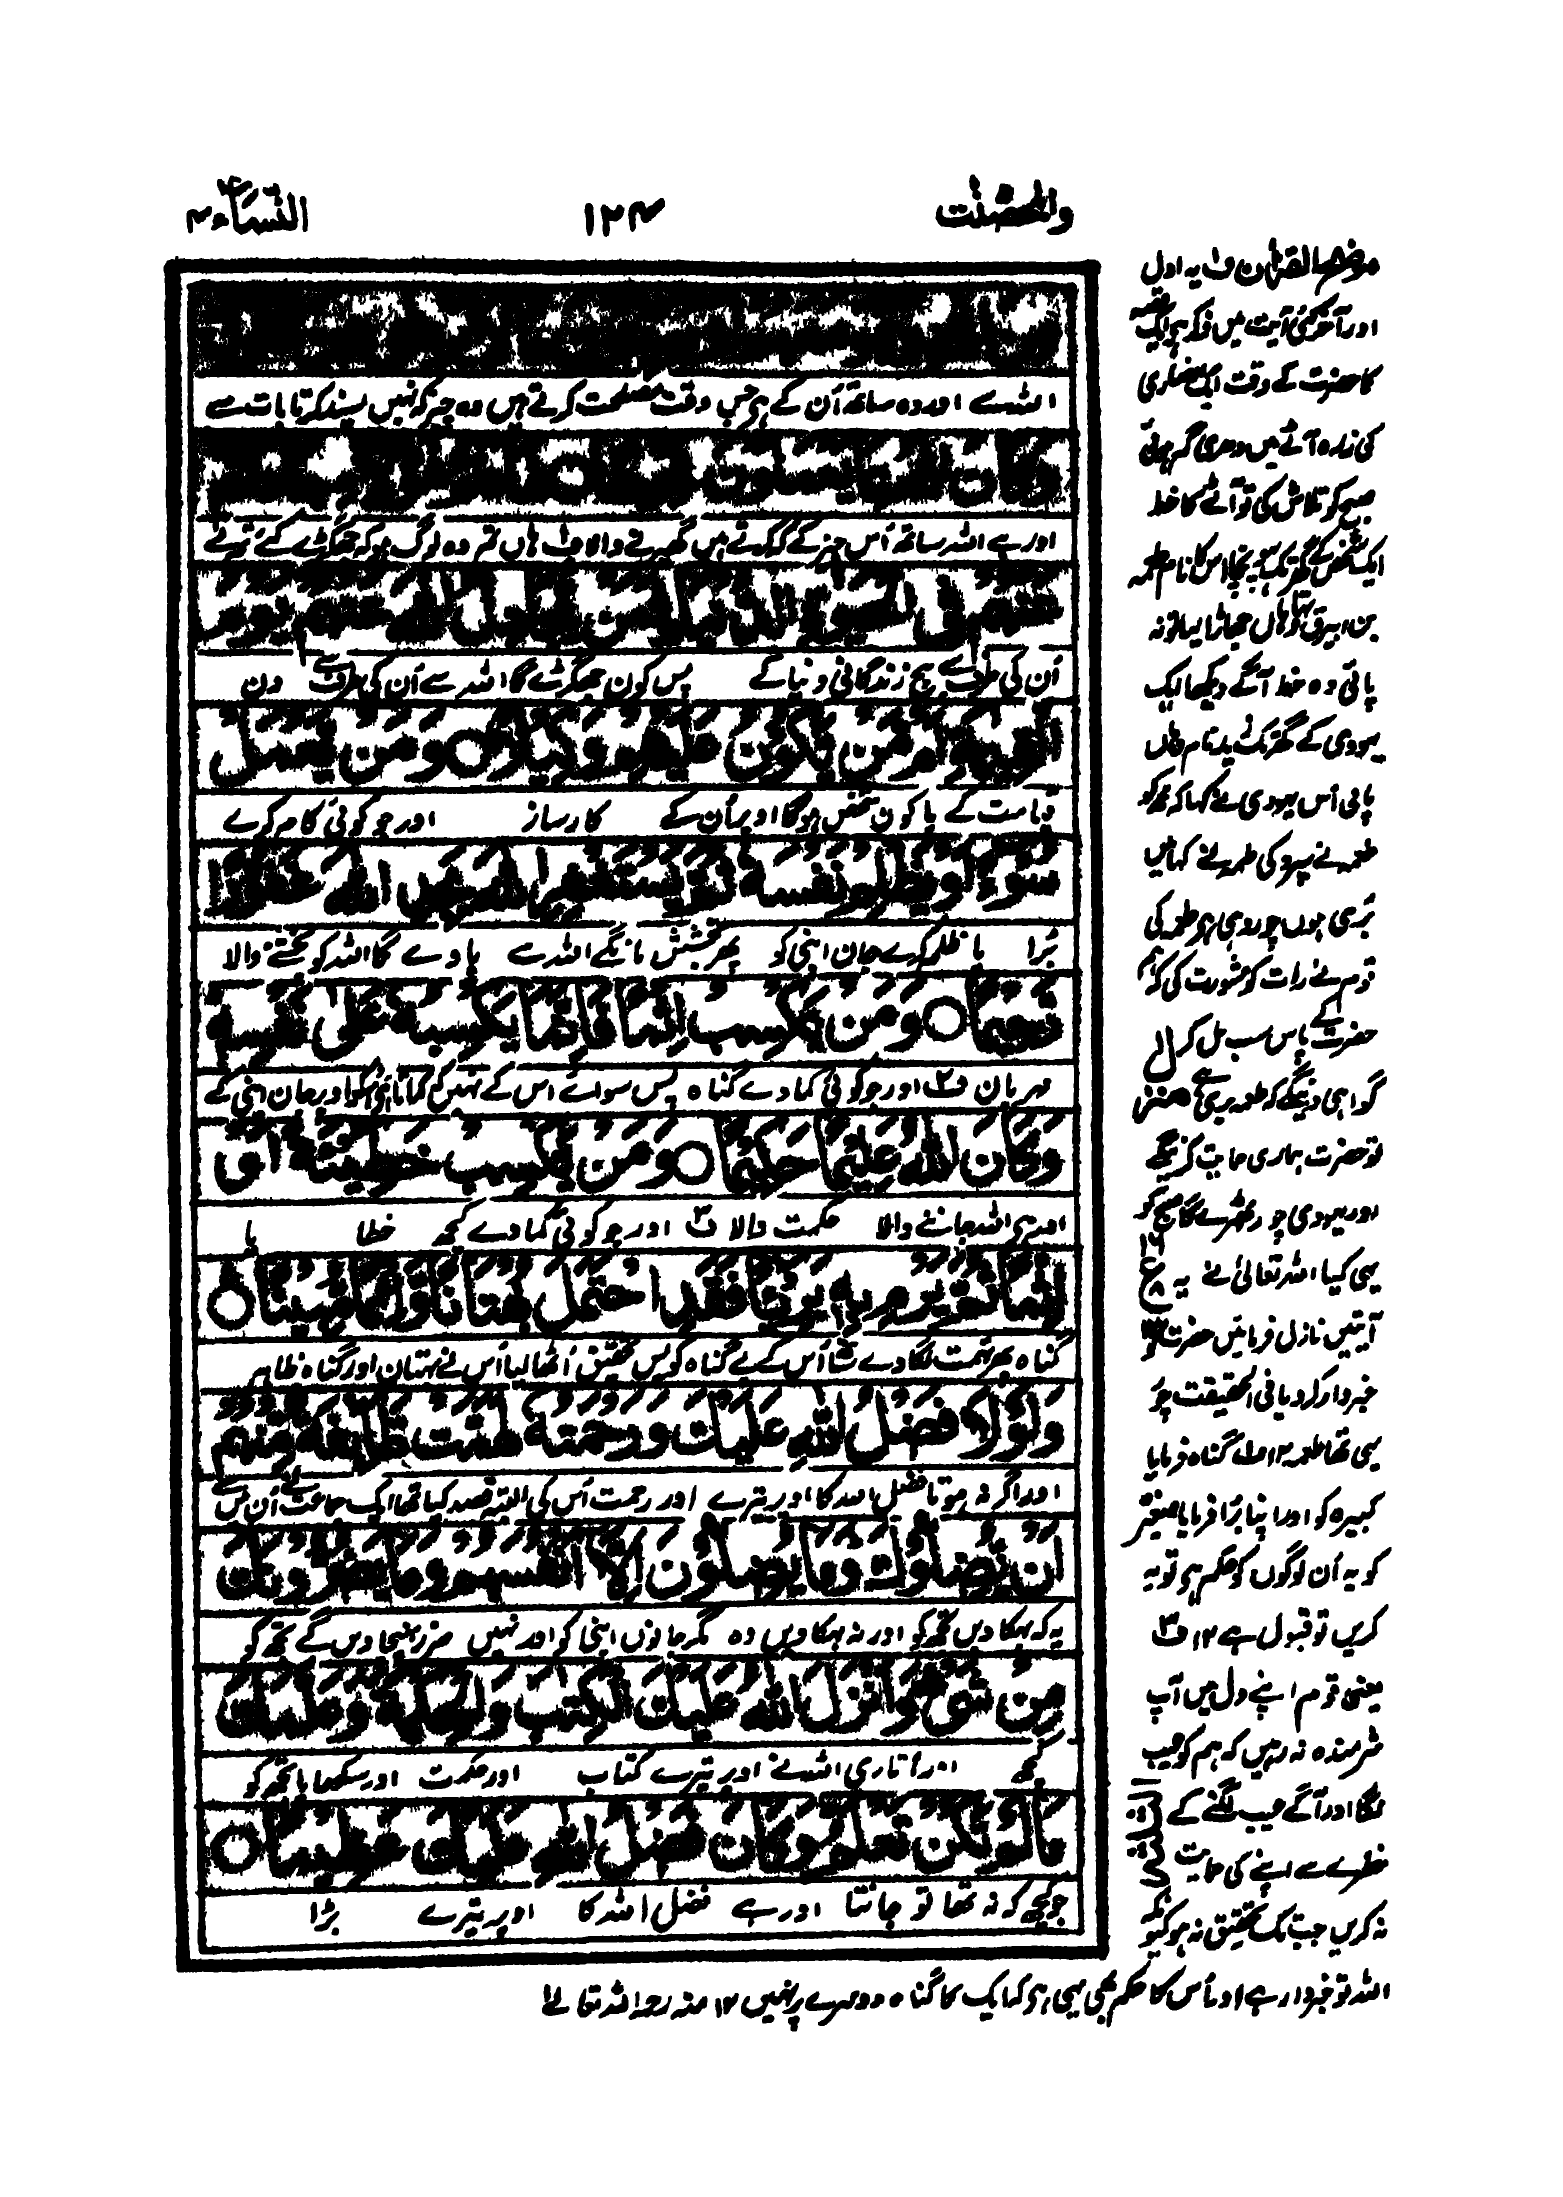 والمحصنت
۱۲۴
النساء ۴
اللہ سے اور وہ ساتھ اُن کے ہے جس وقت مصلحت کرتے ہیں وہ چیز کہ نہیں پسند کرتا بات سے
وكان الله بما يعملون
اور ہے اللہ ساتھ اُس چیز کے کہ کرتے ہیں گھیرنے والا ف۱ ہاں تم وہ لوگ ہو کہ جھگڑے کئے تم نے
عنهم فى الحيوة الدنيا فمن يجادل الله عنهم يوم
اُن کی طرف سے بیچ زندگانی دنیا کے پس کون جھگڑے گا اللہ سے اُن کی طرف سے دن
القيمة ام من يكون عليهم وكيلا ○ ومن يعمل
قیامت کے یا کون شخص ہوگا اوپر اُن کے کارساز اور جو کوئی کام کرے
سوءا او يظلم نفسه ثم يستغفر الله يجد الله غفورا
بُرا یا ظلم کرے جان اپنی کو پھر بخشش مانگے اللہ سے پاوے گا اللہ کو بخشنے والا
رحيما ○ ومن يكسب اثما فانما يكسبه على نفسه
مہربان ف۲ اور جو کوئی کماوے گناہ پس سوائے اس کے نہیں کہ کماتا ہے اُسکو اوپر جان اپنی کے
وكان الله عليما حكيما ○ ومن يكسب خطيئة او
اور ہے اللہ جاننے والا حکمت والا ف۳ اور جو کوئی کماوے کچھ خطا یا
اثما ثم يرم به بريئا فقد احتمل بهتانا واثما مبينا ○
گناہ پھر تہمت لگا دے ساتھ اُس کے بے گناہ کو پس تحقیق اُٹھا لیا اُس نے بہتان اور گناہ ظاہر
ولولا فضل الله عليك ورحمته لهمت طائفة منهم
اور اگر نہ ہوتا فضل اللہ کا اوپر تیرے اور رحمت اُس کی البتہ قصد کیا تھا ایک جماعت نے اُن میں سے
ان يضلوك وما يضلون الا انفسهم وما يضرونك
یہ کہ بہکا دیں تجھ کو اور نہ بہکاویں وہ مگر جانوں اپنی کو اور نہیں ضرر پہنچاویں گے تجھ کو
من شىء وانزل الله عليك الكتب والحكمة وعلمك
کچھ اور اُتاری اللہ نے اوپر تیرے کتاب اور حکمت اور سکھایا تجھ کو
ما لم تكن تعلم وكان فضل الله عليك عظيما ○
جو کچھ کہ نہ تھا تو جانتا اور ہے فضل اللہ کا اوپر تیرے بڑا
موضح القرآن ف۱ یہ اول
اور آخر کئی آیت میں ذکر ہے ایک قصہ
کا حضرت کے وقت ایک انصاری
کی زرہ آٹے میں دھری گم ہوئی
صبح کو تلاش کی تو آٹے کا خط
ایک شخص کے گھر تک پہنچا اس کا نام طعمہ
بن ابیرق تھا وہاں جھاڑا لیا تو نہ
پائی وہ خط آگے دیکھا ایک
یہودی کے گھر تک زید نام وہاں
پائی اُس یہودی نے کہا کہ مجھ کو
طعمہ نے سپرد کی طعمہ نے کہا میں
بَری ہوں چور وہی ہے طعمہ کی
قوم نے رات کو مشورت کی کہ ہم
حضرت کے پاس سب مل کر
گواہی دینگے کہ طعمہ بری ہے
تو حضرت ہماری حمایت کرینگے
اور یہودی چور ٹھہرے گا صبح کو
یہی کیا اللہ تعالیٰ نے یہ
آیتیں نازل فرمائیں حضرت کو
خبردار کر دیا فی الحقیقت چور
یہی تھا طعمہ ۱۲ ف۲ گناہ فرمایا
کبیرہ کو اور اپنا بُرا فرمایا صغیرہ
کو یہ اُن لوگوں کو حکم ہے توبہ
کریں تو قبول ہے ۱۲ ف۳
یعنی قوم اپنے دل میں آپ
شرمندہ نہ رہیں کہ ہم کو عیب
لگا اور آگے عیب لگنے کے
خطرے سے اپنے کی حمایت
نہ کریں جب تک تحقیق نہ ہو کیونکہ
اللہ تو خبردار ہے اور اُس کا حکم بھی یہی ہے کہ ایک کا گناہ دوسرے پر نہیں ۱۲ منہ رحمہ اللہ تعالےٰ